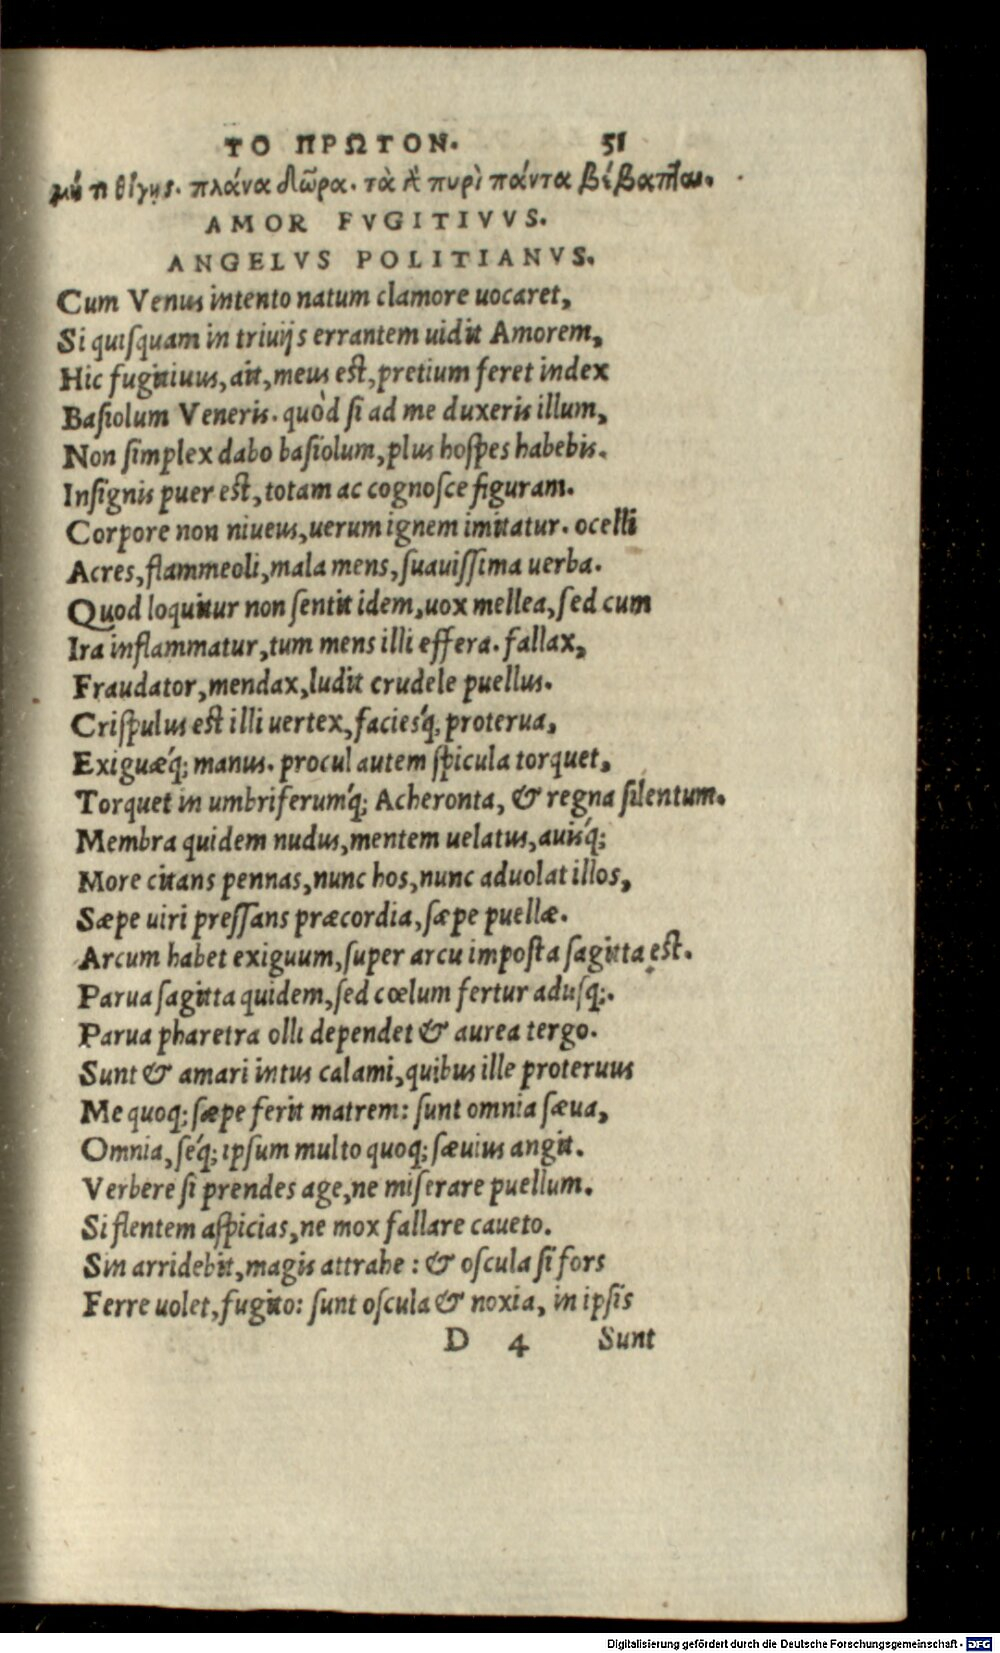 ΤΟ ΠΡΩΤΟΝ. 51
μή τι θίγῃς. πλάνα δῶρα. τὰ δ̓ πυρὶ πάντα βέβαπται.
AMOR FVGITIVVS.
ANGELVS POLITIANVS.
Cum Venus intento natum clamore uocaret,
Si quiſquam in triuijs errantem uidit Amorem,
Hic fugitiuus, ait, meus eſt, pretium feret index
Baſiolum Veneris. quòd ſi ad me duxeris illum,
Non ſimplex dabo baſiolum, plus hoſpes habebis.
Inſignis puer eſt, totam ac cognoſce figuram.
Corpore non niueus, uerum ignem imitatur. ocelli
Acres, flammeoli, mala mens, ſuauiſſima uerba.
Quod loquitur non ſentit idem, uox mellea, ſed cum
Ira inflammatur, tum mens illi effera. fallax,
Fraudator, mendax, ludit crudele puellus.
Criſpulus eſt illi uertex, facieśq; proterua,
Exiguǽq; manus. procul autem ſpicula torquet,
Torquet in umbriferumq́; Acheronta, & regna ſilentum.
Membra quidem nudus, mentem uelatus, auisq́;
More citans pennas, nunc hos, nunc aduolat illos,
Sæpe uiri preſſans præcordia, ſæpe puellæ.
Arcum habet exiguum, ſuper arcu impoſta ſagitta eſt.
Parua ſagitta quidem, ſed cœlum fertur aduſq;.
Parua pharetra olli dependet & aurea tergo.
Sunt & amari intus calami, quibus ille proteruus
Me quoq; ſæpe ferit matrem: ſunt omnia ſæua,
Omnia, ſeq́; ipſum multo quoq; ſæuius angit.
Verbere ſi prendes age, ne miſerare puellum.
Si flentem aſpicias, ne mox fallare caueto.
Sin arridebit, magis attrahe: & oſcula ſi fors
Ferre uolet, fugito: ſunt oſcula & noxia, in ipſis
D 4 Sunt
Digitalisierung gefördert durch die Deutsche Forschungsgemeinschaft - DFG